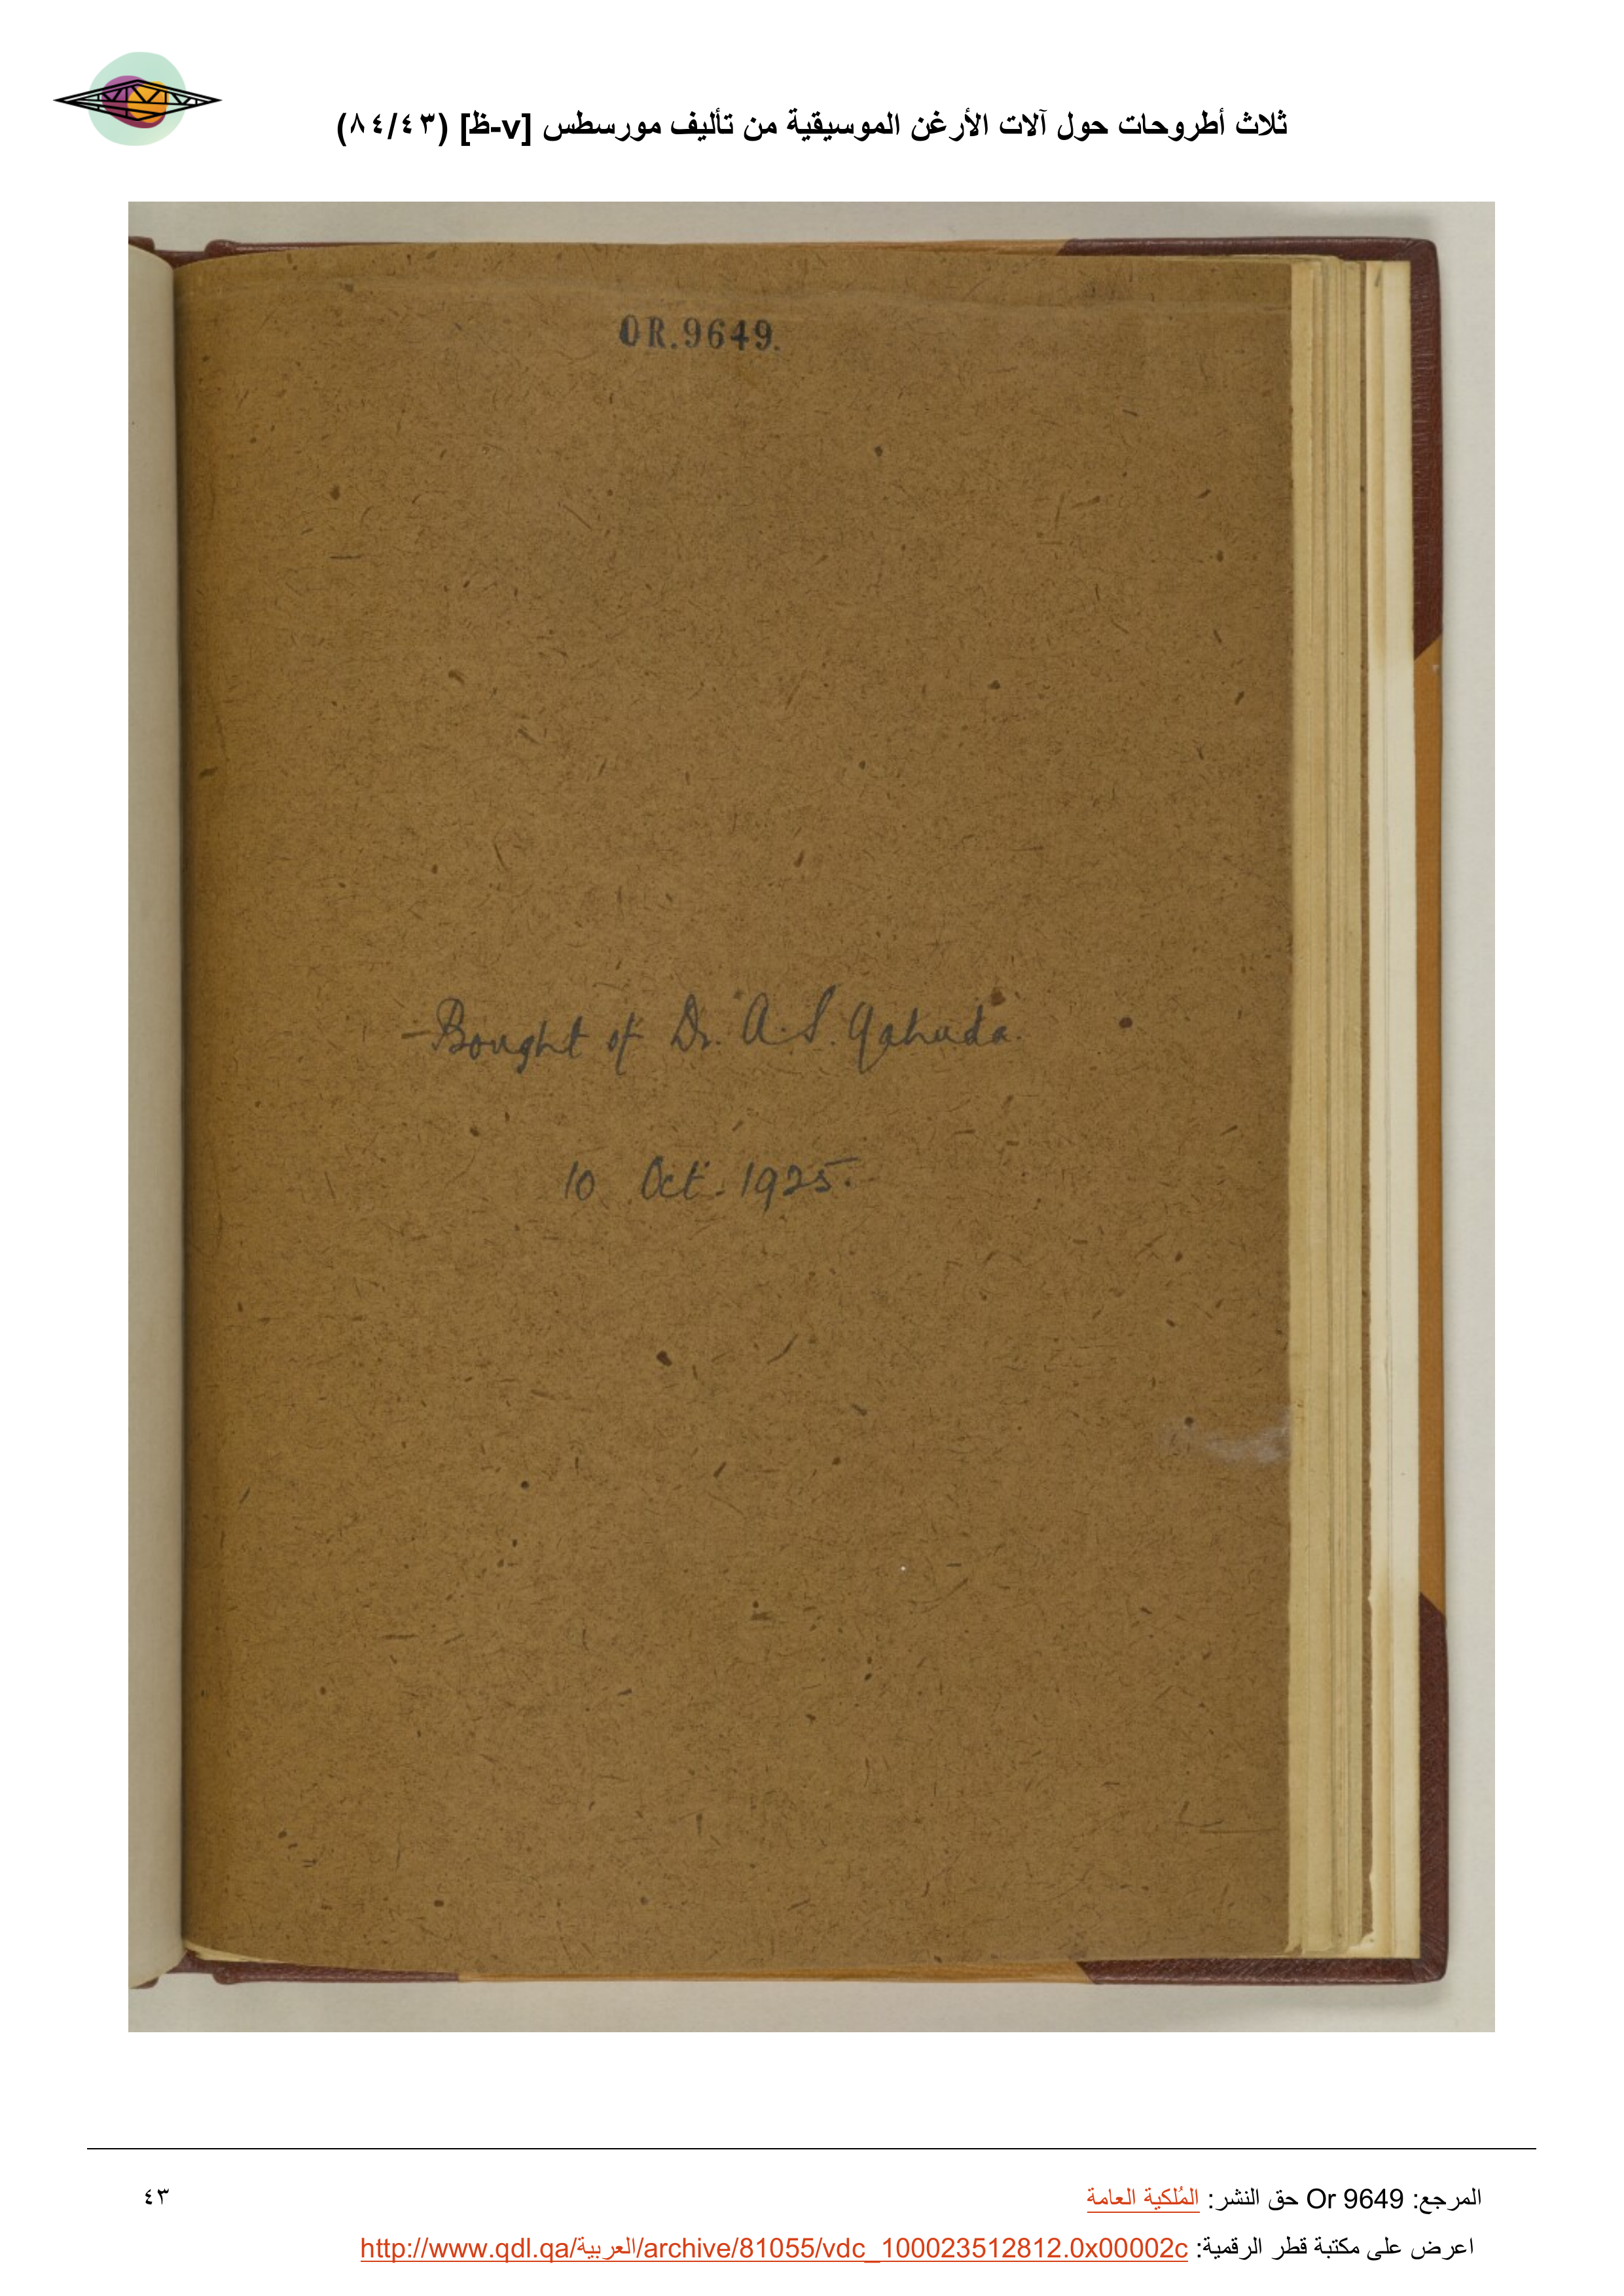 ثلاث أطروحات حول آلات الأرغن الموسيقية من تأليف مورسطس [v-ظ] (٨٤/٤٣)
OR.9649.
Bought of Dr. A.S. Yahuda.
10 Oct. 1925.
المرجع: Or 9649 حق النشر: المُلكية العامة
٤٣
اعرض على مكتبة قطر الرقمية: http://www.qdl.qa/العربية/archive/81055/vdc_100023512812.0x00002c